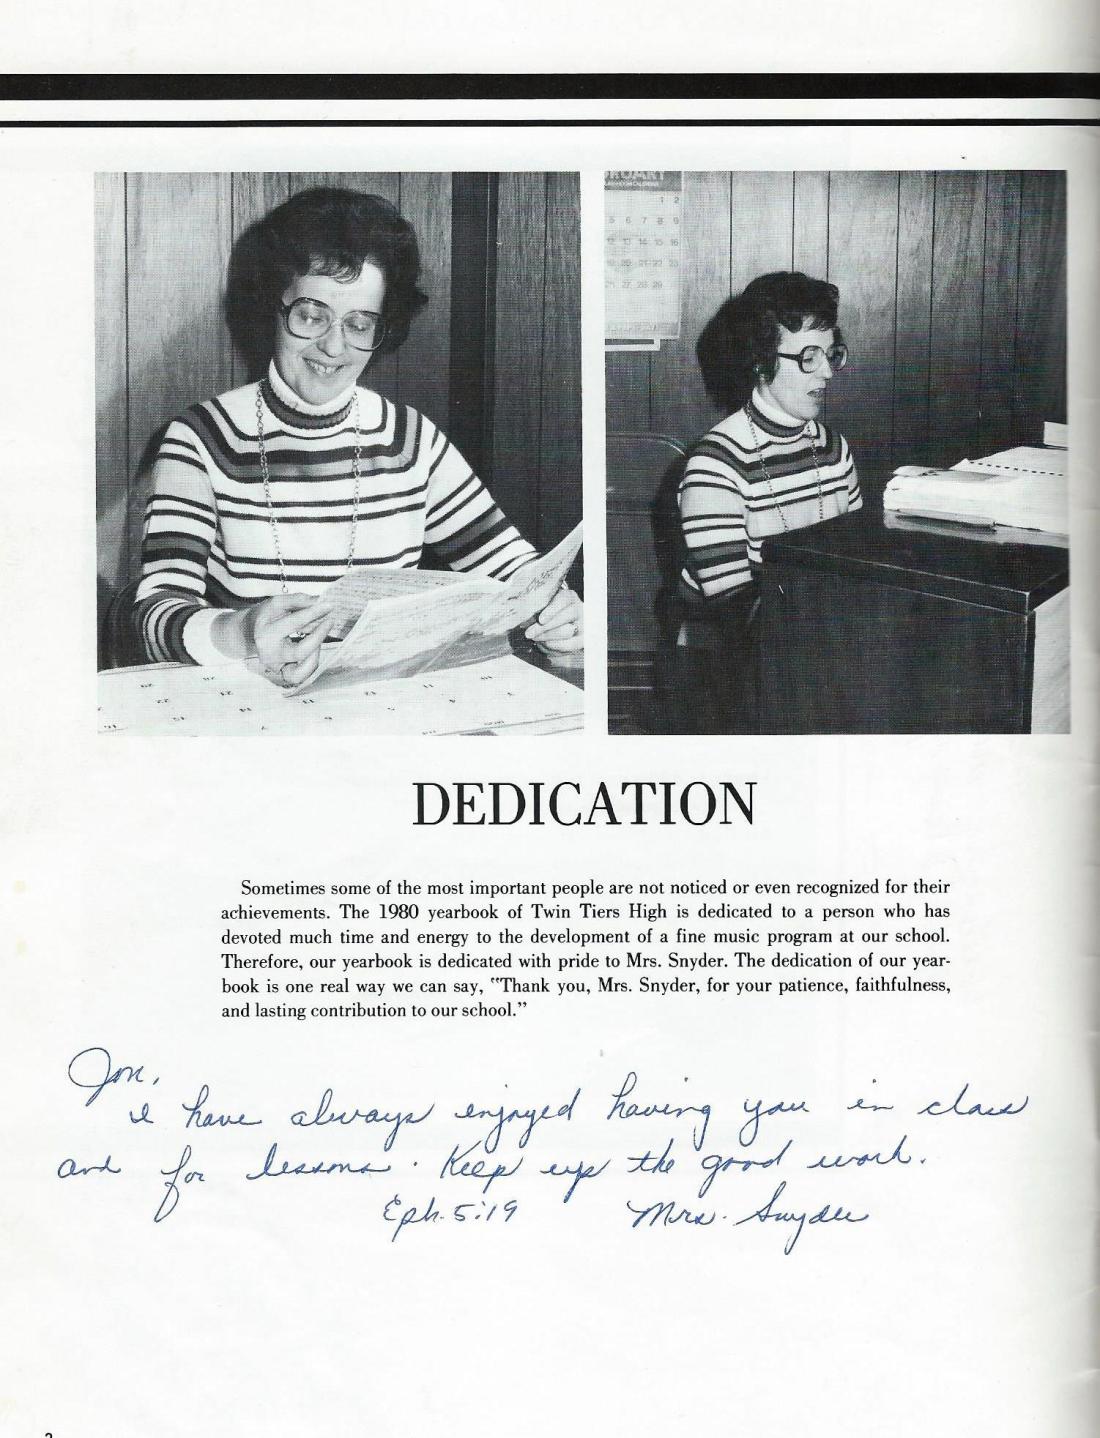 1 2
5 6 7 8 9
12 13 14 15 16
19 20 21 22 23
27 28 29
DEDICATION
Sometimes some of the most important people are not noticed or even recognized for their
achievements. The 1980 yearbook of Twin Tiers High is dedicated to a person who has
devoted much time and energy to the development of a fine music program at our school.
Therefore, our yearbook is dedicated with pride to Mrs. Snyder. The dedication of our year-
book is one real way we can say, "Thank you, Mrs. Snyder, for your patience, faithfulness,
and lasting contribution to our school."
Jon,
I have always enjoyed having you in class
and for lessons. Keep up the good work.
Eph. 5:19 Mrs. Snyder